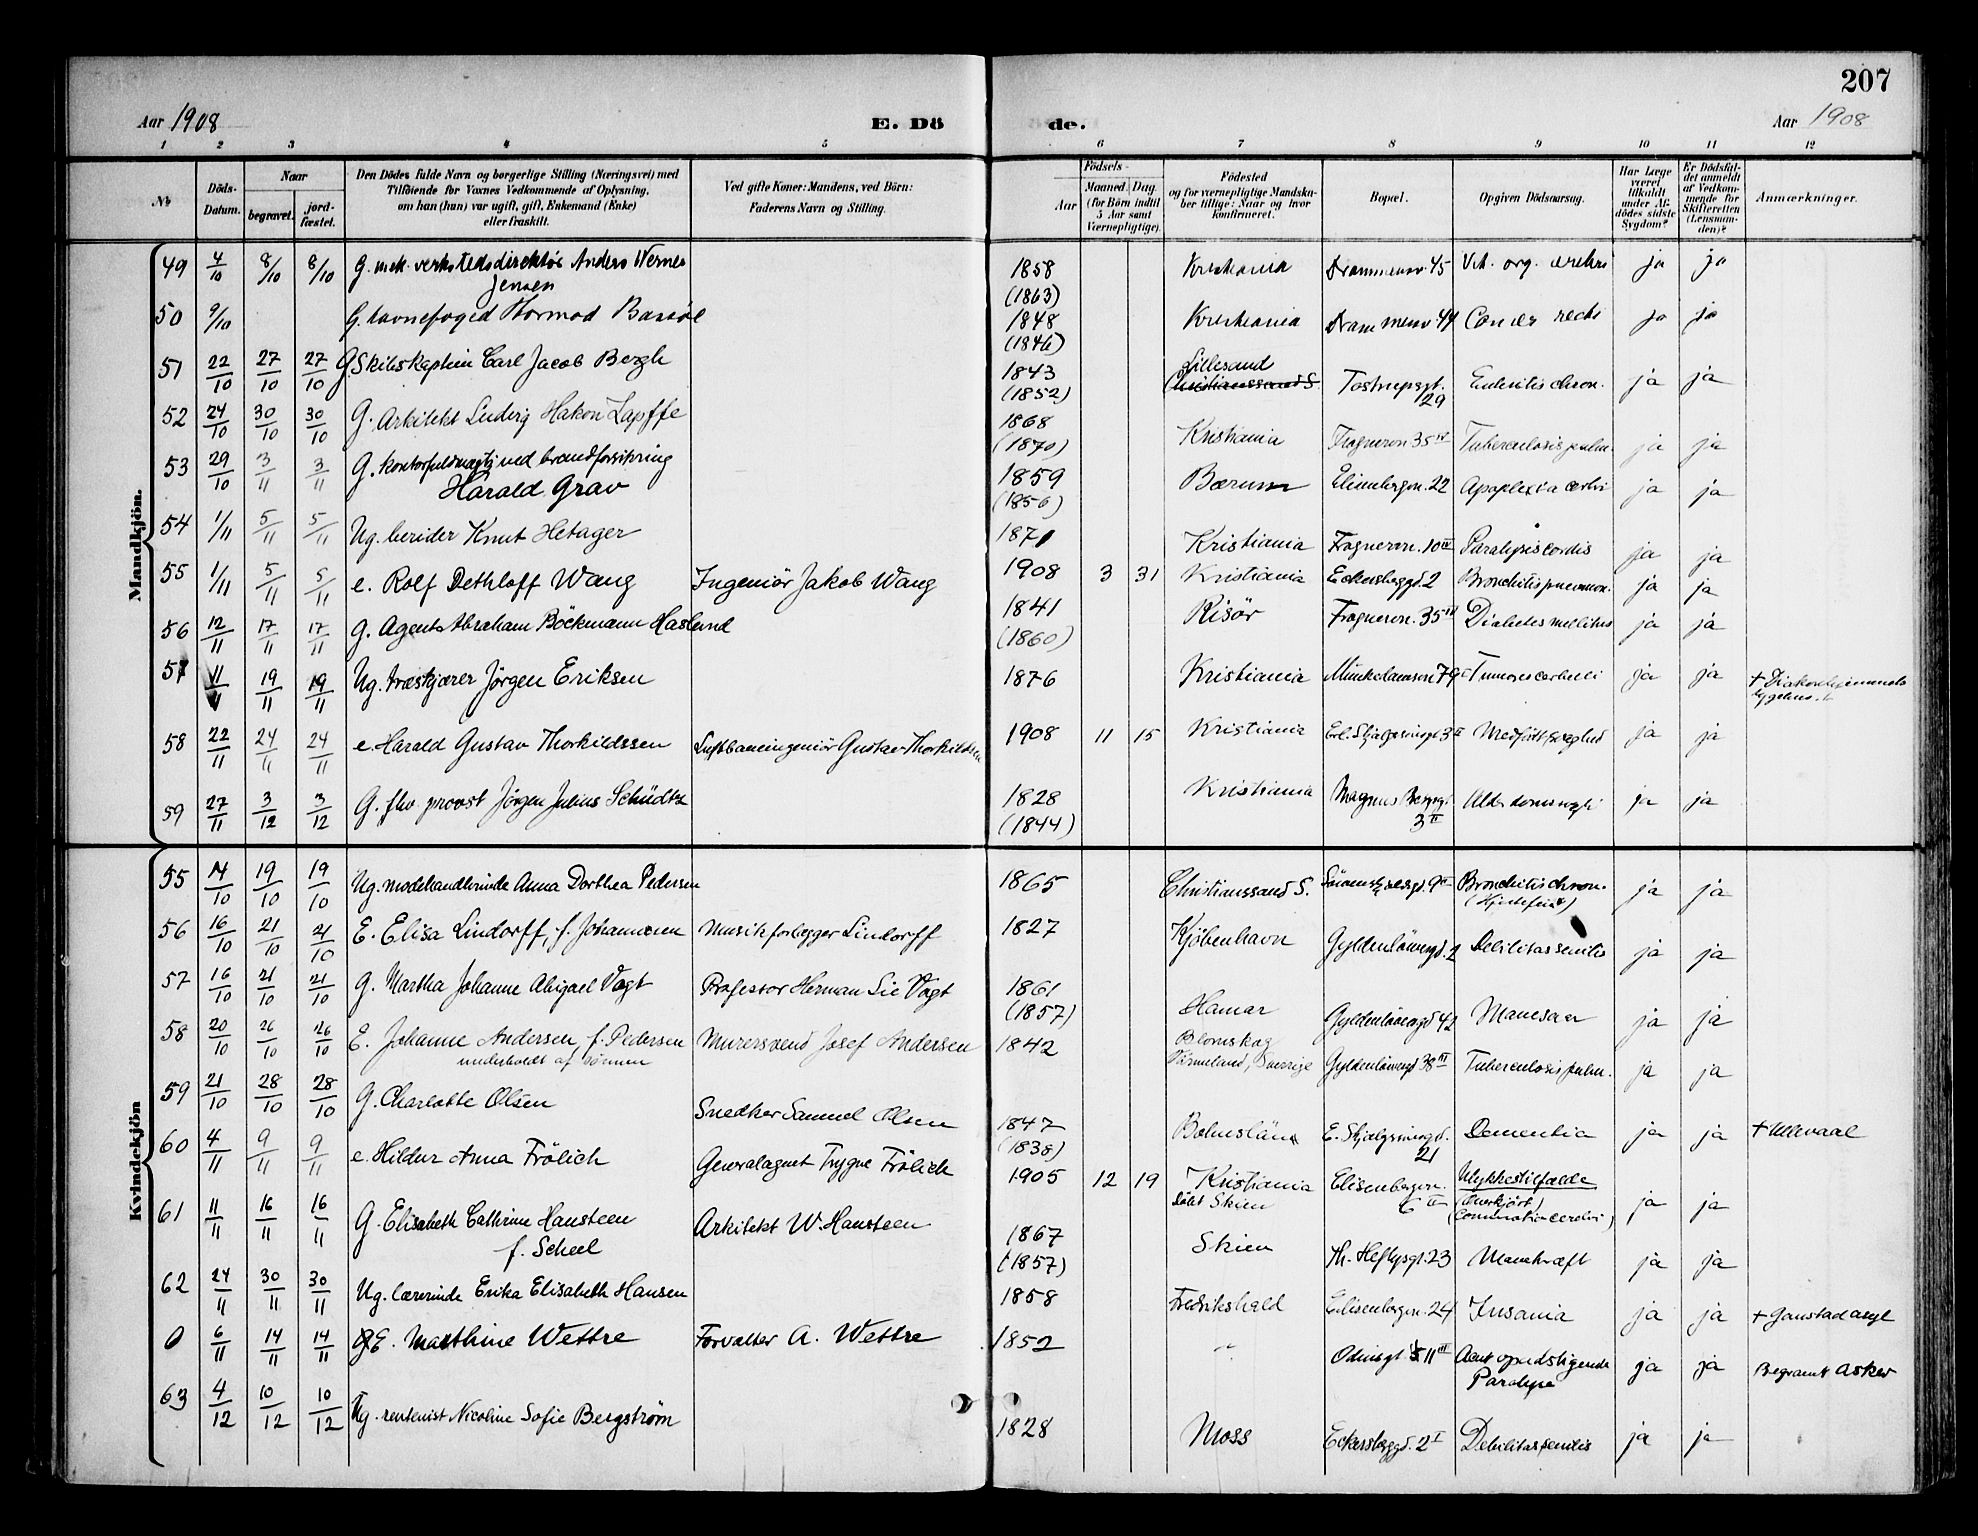 207
Aar 1908
E. Dö
de.
Aar 1908
1 2 3 4 5 6 7 8 9 10 11 12
No
Döds-Datum.
Naar
begravet.
jord-fæstet.
Den Dödes fulde Navn og borgerlige Stilling (Næringsvei) med
Tilföiende for Voxnes Vedkommende af Oplysning,
om han (hun) var ugift, gift, Enkemand (Enke)
eller fraskilt.
Ved gifte Koner: Mandens, ved Börn:
Faderens Navn og Stilling.
Födsels-
Aar
Maaned Dag
(for Börn indtil
5 Aar samt
Værnepligtige).
Födested
og for værnepligtige Mandska-
ber tillige: Naar og hvor
konfirmeret.
Bopæl.
Opgiven Dödsaarsag.
Har Læge
været
tilkaldt
under Af-
dödes sidste
Sygdom?
Er Dödsfal-
det anmeldt
af Vedkom-
mende for
Skifteretten
(Lensman-
den)?
Anmærkninger.
Mandkjön.
49 4/10 8/10 8/10 G. mek. verkstedsdirektör Anders Werner Jensen 1858 (1863) Kristiania Drammensv. 45 Vit. org. cordis ja ja
50 9/10 G. havnefoged Thormod Bassöe 1848 (1846) Kristiania Drammensv. 44 Cancer recti ja ja
51 22/10 27/10 27/10 G. Skibskaptein Carl Jacob Bergh 1843 (1852) Lillesand Christianssand S. Tostrupsgt. 29 Enteritis chron. ja ja
52 24/10 30/10 30/10 G. Arkitekt Ludvig Hakon 1868 (1870) Kristiania Frognervn. 35 IV Tuberculosis pulm. ja ja
53 29/10 3/11 3/11 G. kontorfuldmægtig ved brandforsikring Harald Grav 1859 (1856) Bærum Elisenbergvn. 22 Apoplexia cerebri ja ja
54 1/11 5/11 5/11 Ug. berider Knut Hetager 1871 Kristiania Frognervn. 10 IV Paralysis cordis ja ja
55 1/11 5/11 5/11 e. Rolf Dethloff Wang Ingeniör Jakob Wang 1908 3 31 Kristiania Eckersberggd. 2 Bronchitis pneumon. ja ja
56 12/11 17/11 17/11 G. Agent Abraham Böckmann Hasland 1841 (1860) Risör Frognervn. 35 IV Diabetes mellitus ja ja
57 11/11 19/11 19/11 Ug. træskjærer Jörgen Eriksen 1876 Kristiania Munkedamsvn 79 Tumor cerebelli ja ja + Diakonhjemmets sygehus
58 22/11 24/11 24/11 e. Harald Gustav Thorkildssen Luftbaneingeniör Gustav Thorkildsen 1908 11 15 Kristiania Erl. Skjalgssöngt 3 II Medfödt svaghed ja ja
59 27/11 3/12 3/12 G. fhv. provst Jörgen Julius Schüdtz 1828 (1844) Kristiania Magnus Bergsgt. 3 II Alderdomssvagh. ja ja
Kvindekjön
55 14/10 19/10 19/10 Ug. modehandlerinde Anna Dorthea Pedersen 1865 Christianssand S. Bronchitis chron. (Hjertefeil) ja ja
56 16/10 21/10 21/10 E. Elisa Lindorff, f. Johannesen Musikforlægger Lindorff 1827 Kjöbenhavn Gyldenlövesgd. 2 Debilitas senilis ja ja
57 16/10 21/10 21/10 G. Martha Johanne Abigael Vogt Professor Herman Lie Vogt 1861 (1857) Hamar Gyldenlövesgd 42 Mavesaar ja ja
58 20/10 26/10 26/10 E. Johanne Andersen, f. Pedersen underholdt af sönnen Murersvend Josef Andersen 1842 Blomskog Värmeland, Sverige Gyldenlövesgd 38 III Tuberculosis pulm. ja ja
59 21/10 28/10 28/10 G. Charlotte Olsen Snedker Samuel Olsen 1847 (1838) Bohuslän E. Skjalgssönsgd. 21 Dementia ja ja + Ullevaal
60 4/11 9/11 9/11 e. Hildur Anna Frölich Generalagent Trygve Frölich 1905 12 19 Kristiania döbt Skien Elisenbergvn. 6 II Ulykkestilfælde (Overkjört) (Commotio cerebri) ja ja
61 11/11 16/11 16/11 G. Elisabeth Cathrine Hansteen f. Scheel Arkitekt W. Hansteen 1867 (1857) Skien Th. Heftyesgt. 23 Mavekræft ja ja
62 24/11 30/11 30/11 Ug. lærerinde Erika Elisabeth Hansen 1858 Fredrikshald Elisenbergvn. 24 Insania ja ja + Gaustad asyl
0 6/11 14/11 14/11 E. Marthine Wettre Forvalter A. Wettre 1852 " Odinsgt 11 III Acut opadstigende Paralyse ja ja Begravet Asker
63 4/12 10/12 10/12 Ug. rentenist Nicoline Sofie Bergström 1828 Moss Eckersberggd. 2 I Debilitas senilis ja ja